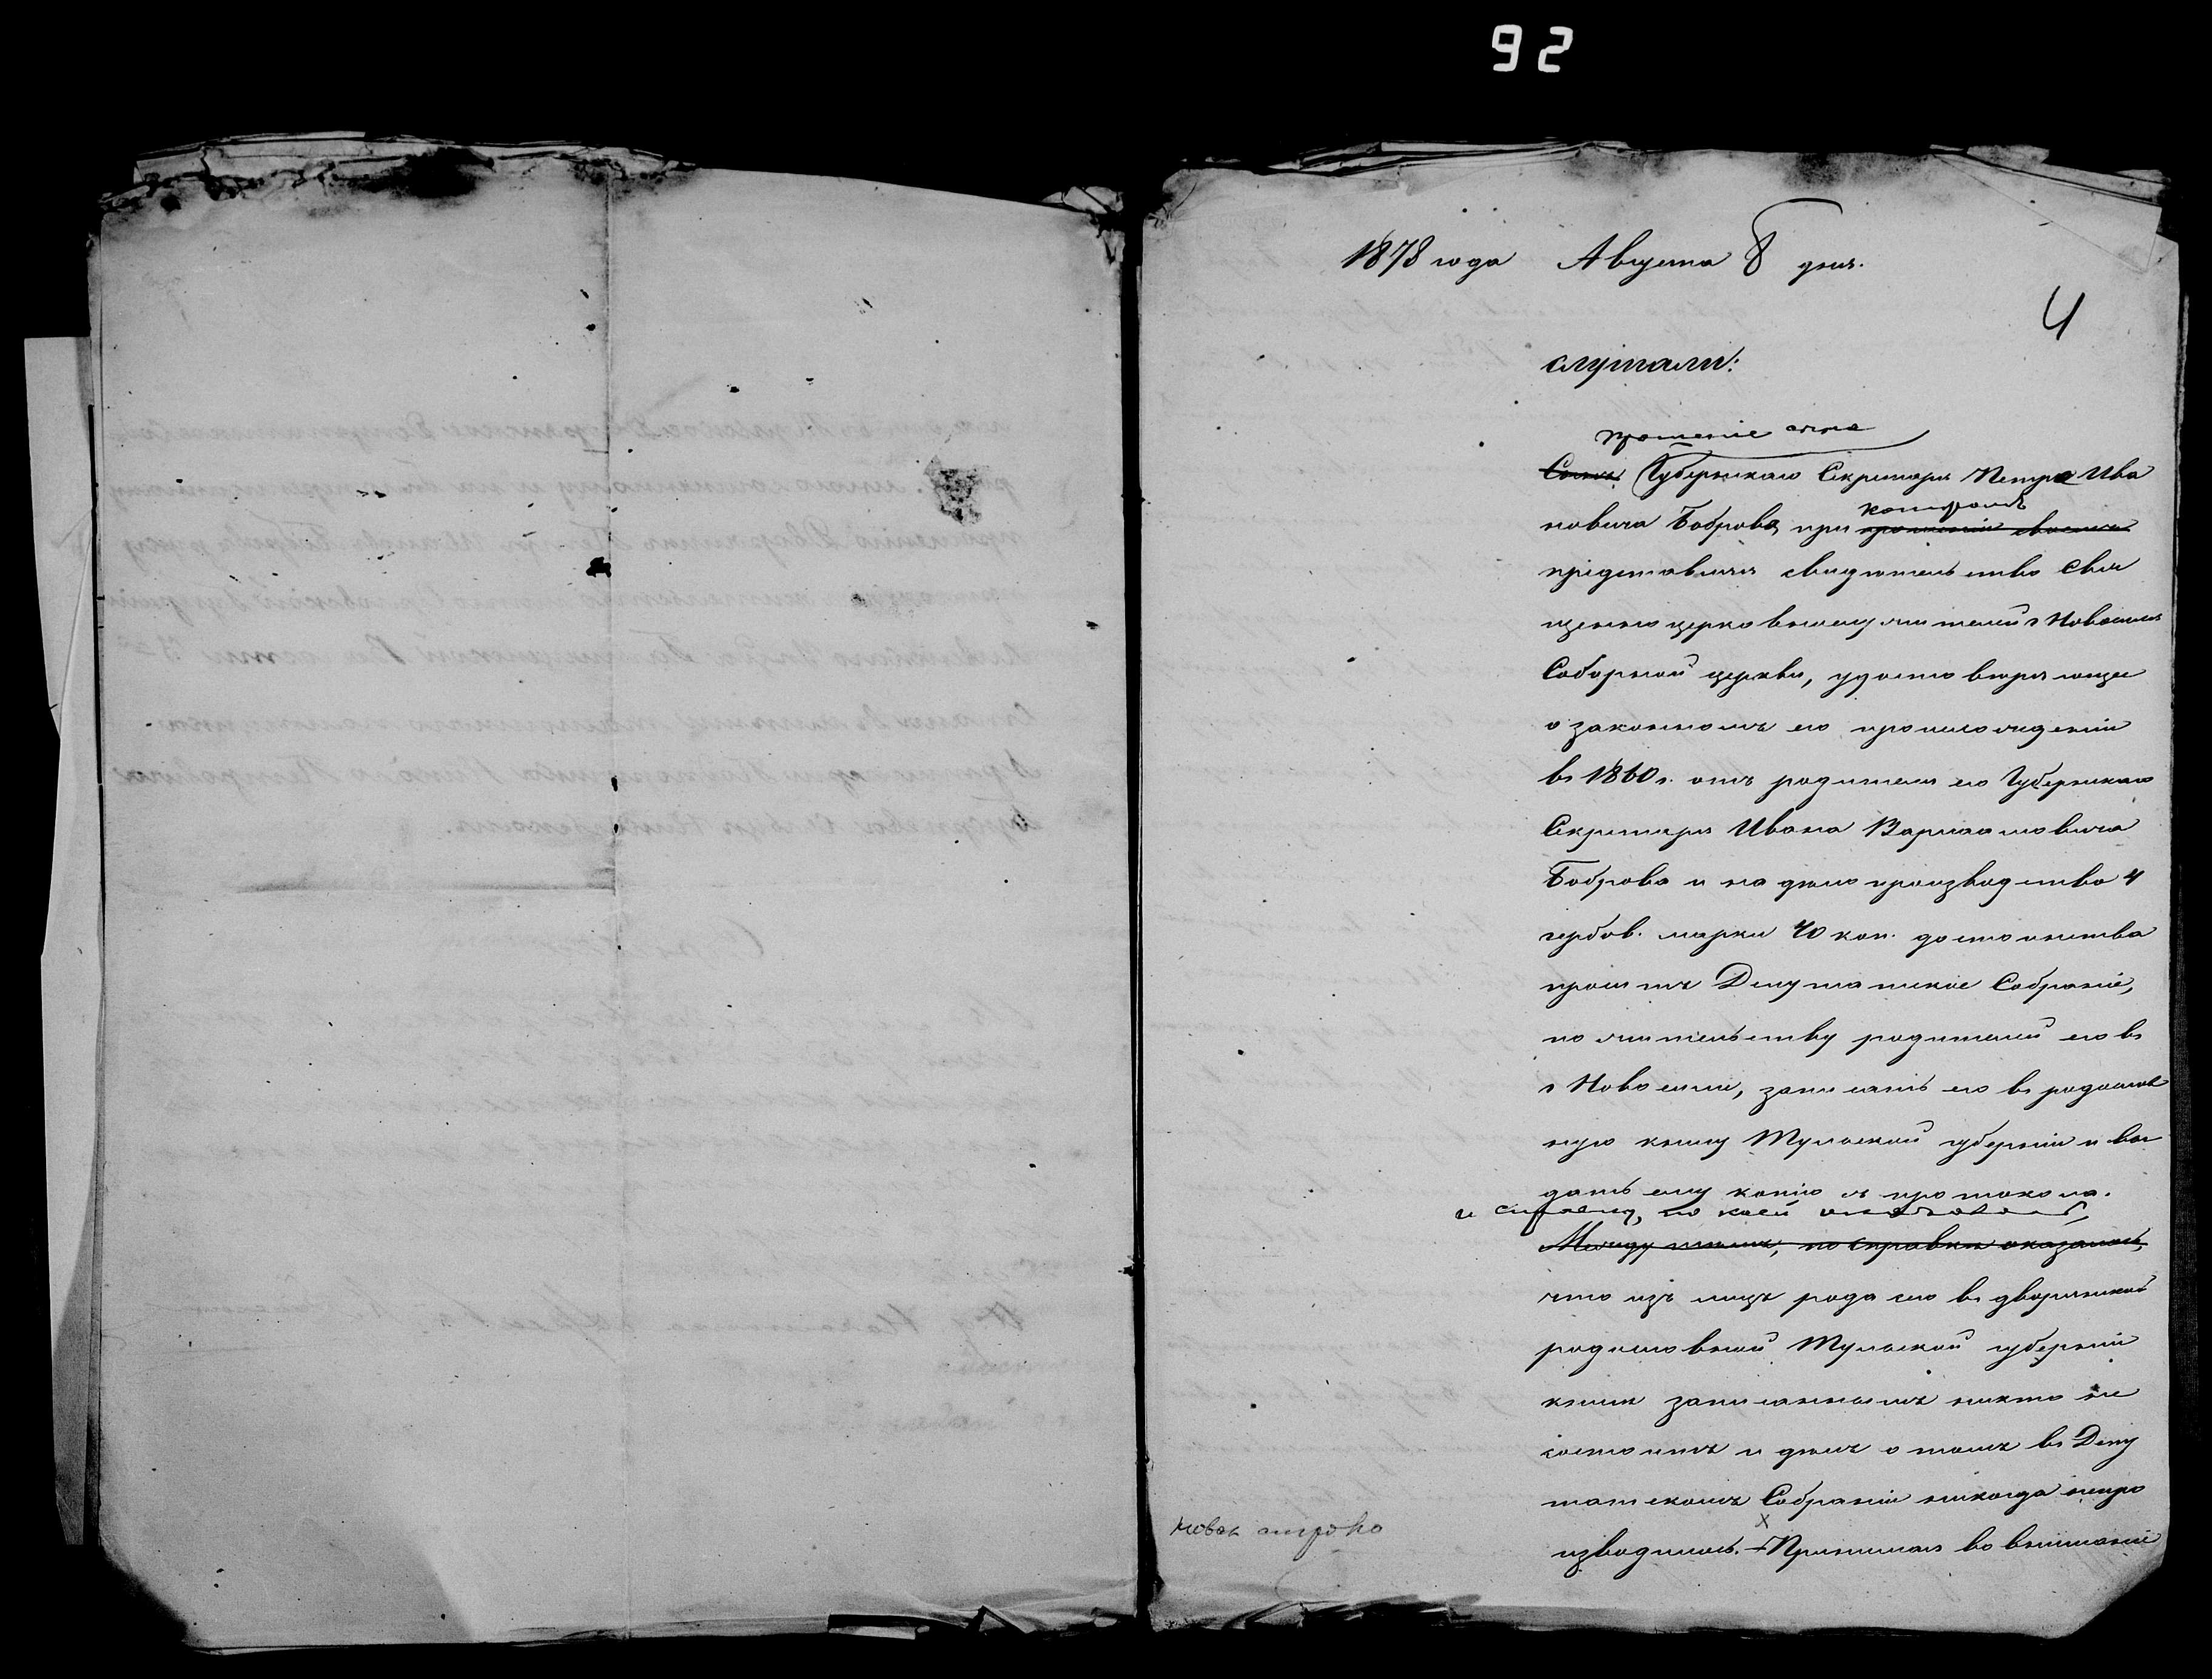 92
1878 года Августа 8 дня.
4
слушали:
прошеніе сына
Сынъ Губернскаго Секретаря Петра Ива
новича Боброва, при которомъ прошеніи своемъ
представляя свидѣтельство Свя
щенноцерковнослужителей г Новосиля
Соборной церкви, удостовѣряющее
о законномъ его происхожденіи
въ 1860 г. отъ родителя его Губернскаго
Секретаря Ивана Варлаамовича
Боброва и на дѣлопроизводство 4
гербов. марки 40 коп. достоинства
проситъ Депутатское Собраніе,
по жительству родителей его въ
г Новосили, записать его въ родослов
ную книгу Тульской губерніи и вы
дать ему копію съ протокола.
и справку, по коей оказалось,
Между тѣмъ, по справкѣ оказалось,
что изъ лицъ рода сего въ дворянской
родословной Тульской губерніи
книгѣ записаннымъ никто не
состоитъ и дѣлъ о томъ въ Депу
татскомъ Собраніи никогда непро
изводилось. Принимая во вниманіе
новая строка